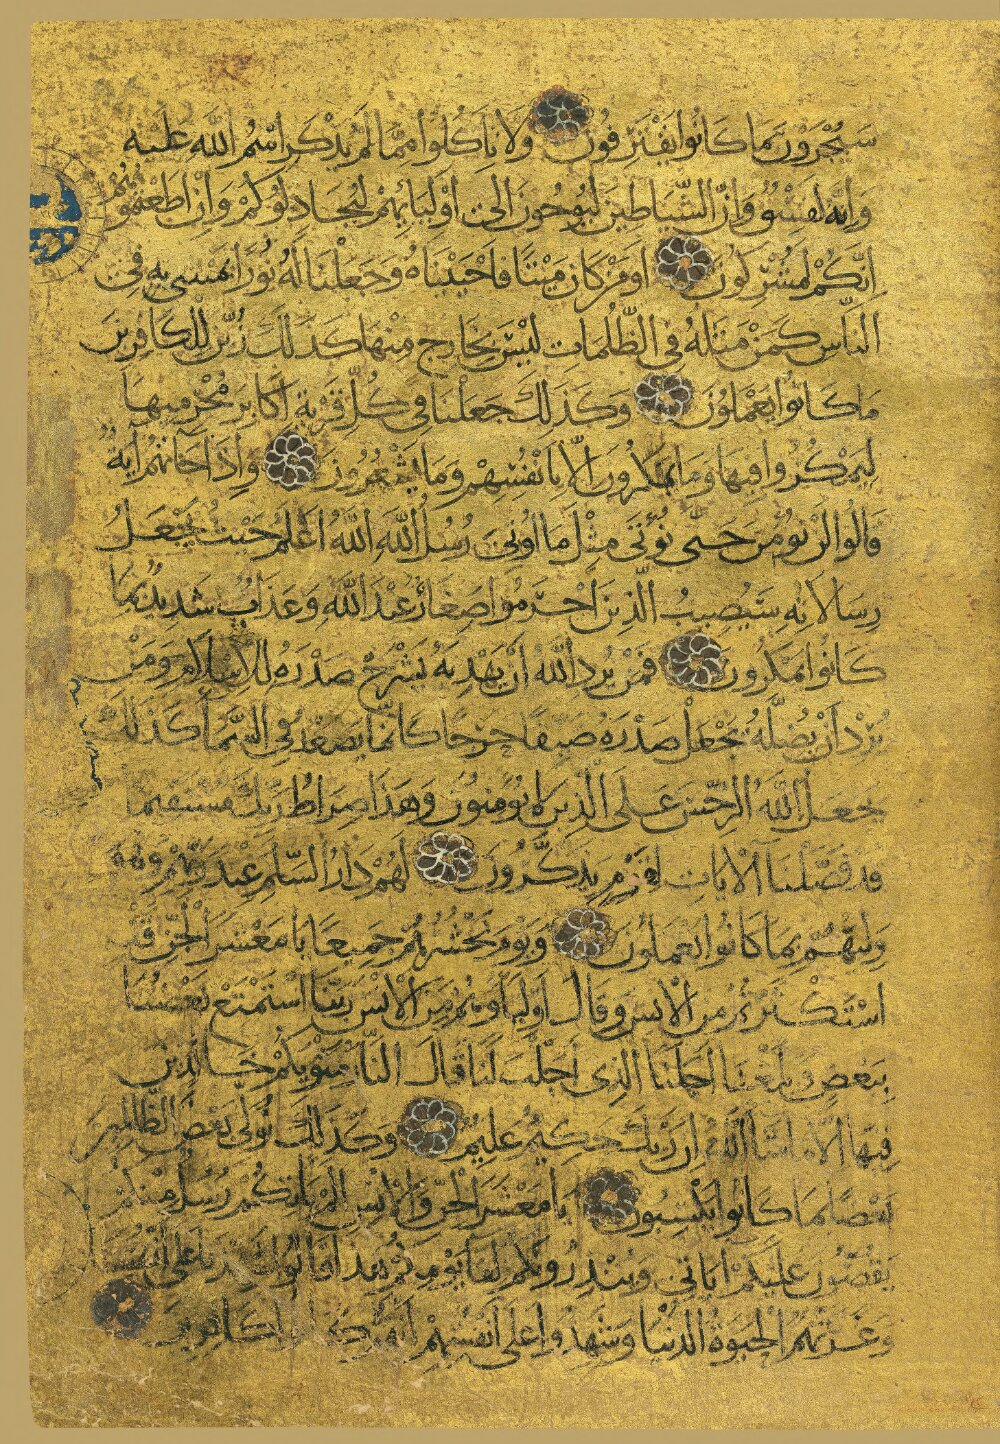 سيجزون بما كانوا يقترفون ولا تاكلوا مما لم يذكر اسم الله عليه
وانه لفسق وان الشياطين ليوحون الى اوليائهم ليجادلوكم وان اطعتموهم
انكم لمشركون اومن كان ميتا فاحييناه وجعلنا له نورا يمشي به في
الناس كمن مثله في الظلمات ليس بخارج منها كذلك زين للكافرين
ما كانوا يعملون وكذلك جعلنا في كل قرية اكابر مجرميها
ليمكروا فيها وما يمكرون الا بانفسهم وما يشعرون واذا جاءتهم اية
قالوا لن نؤمن حتى نؤتى مثل ما اوتي رسل الله الله اعلم حيث يجعل
رسالاته سيصيب الذين اجرموا صغار عند الله وعذاب شديد بما
كانوا يمكرون فمن يرد الله ان يهديه يشرح صدره للاسلام ومن
يرد ان يضله يجعل صدره ضيقا حرجا كانما يصعد في السما كذلك
يجعل الله الرجس على الذين لا يؤمنون وهذا صراط ربك مستقيما
قد فصلنا الايات لقوم يذكرون لهم دار السلم عند ربهم وهو
وليهم بما كانوا يعملون ويوم نحشرهم جميعا يا معشر الجن قد
استكثرتم من الانس وقال اولياوهم من الانس ربنا استمتع بعضنا
ببعض وبلغنا اجلنا الذي اجلت لنا قال النار مثويكم خالدين
فيها الا ما شا الله ان ربك حكيم عليم وكذلك نولي بعض الظالمين
بعضا بما كانوا يكسبون يا معشر الجن والانس الم ياتكم رسل منكم
يقصون عليكم اياتي وينذرونكم لقا يومكم هذا قالوا شهدنا على انفسنا
وغرتهم الحيوة الدنيا وشهدوا على انفسهم انهم كانوا كافرين